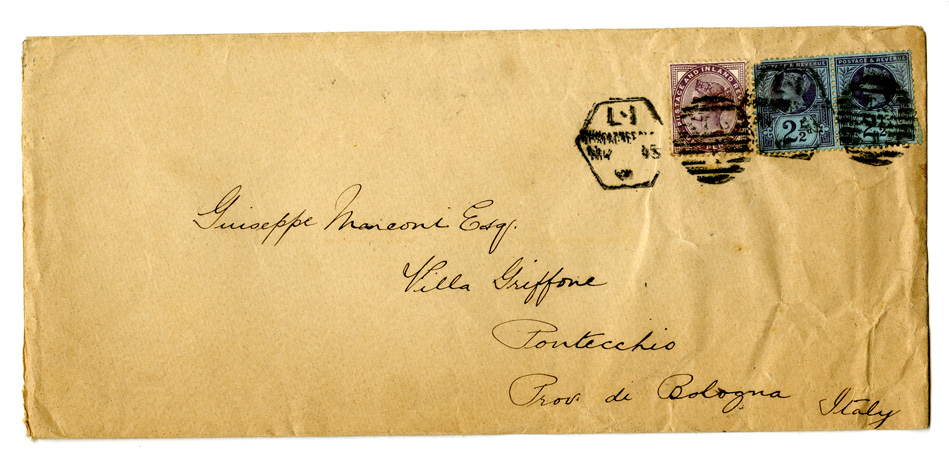 POSTAGE AND INLAND REV
POSTAGE & REVENUE
POSTAGE & REVENUE
L·1
2½
2½
Guiseppe Marconi Esq.
Villa Griffone
Pontecchio
Prov. di Bologna
Italy